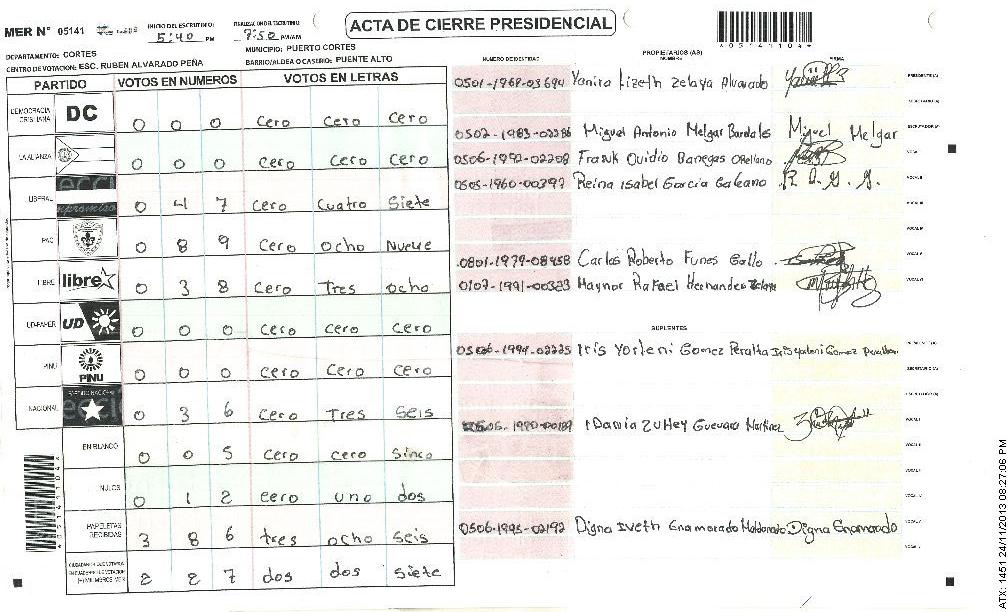 MER N° 05141
INICIO DEL ESCRUTINIO: 5:40 PM
FINALIZACION DEL ESCRUTINIO: 7:50 PM/AM
ACTA DE CIERRE PRESIDENCIAL
*05141104*
DEPARTAMENTO: CORTES
MUNICIPIO: PUERTO CORTES
CENTRO DE VOTACION: ESC. RUBEN ALVARADO PEÑA
BARRIO/ALDEA O CASERIO: PUENTE ALTO
PARTIDO VOTOS EN NUMEROS VOTOS EN LETRAS
DEMOCRACIA CRISTIANA DC 0 0 0 cero cero cero
LA ALIANZA 0 0 0 cero cero cero
LIBERAL 0 4 7 cero cuatro siete
PAC 0 8 9 cero ocho nueve
LIBRE libre 0 3 8 cero Tres ocho
UD-FAPER UD 0 0 0 cero cero cero
PINU PINU 0 0 0 cero cero cero
NACIONAL 0 3 6 cero Tres seis
EN BLANCO 0 0 5 cero cero sinco
NULOS 0 1 2 cero uno dos
PAPELETAS RECIBIDAS 3 8 6 tres ocho seis
2 2 7 dos dos siete
NUMERO DE IDENTIDAD PROPIETARIOS (AS) NOMBRE FIRMA
0501-1968-03694 Yanira Lizeth Zelaya Alvarado PRESIDENTE(A)
SECRETARIO(A)
0502-1983-02286 Miguel Antonio Melgar Bardales Miguel Melgar ESCRUTADOR(A)
0506-1992-02208 Frank Ovidio Banegas Orellano VOCAL I
0505-1960-00397 Reina Isabel Garcia Galeano R. I. G. G. VOCAL II
VOCAL III
VOCAL IV
0801-1979-08458 Carlos Roberto Funes Gallo VOCAL V
0107-1991-00323 Maynor Rafael Hernandez Zelaya VOCAL VI
SUPLENTES
0506-1994-02225 Iris Yorleni Gomez Peralta Iris Yorleni Gomez Peralta PRESIDENTE(A)
SECRETARIO(A)
ESCRUTADOR(A)
Damia Zulley Guevara Martinez VOCAL I
VOCAL II
VOCAL III
VOCAL IV
0506-1995-02192 Digna Iveth Enamorado Maldonado Digna Enamorado VOCAL V
VOCAL VI
ATX: 1451 24/11/2013 08:27:06 PM